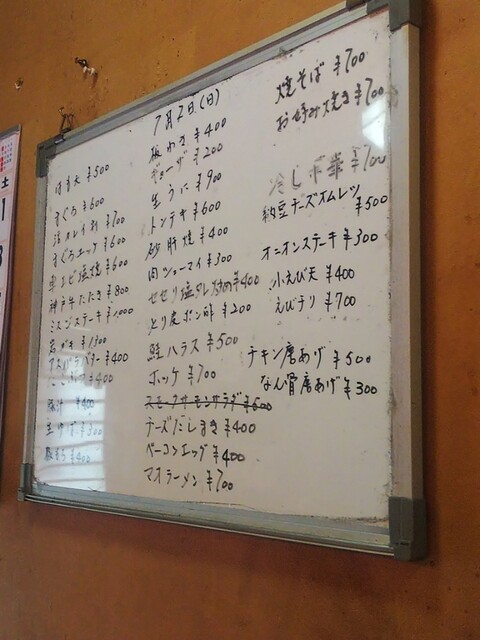 7月2日(日)
はも天 ¥500
まぐろ ¥600
活カレイ刺 ¥700
まぐろエッグ ¥600
車エビ塩焼 ¥600
神戸牛たたき ¥800
ミスジステーキ ¥1,000
岩ガキ ¥1300
アスパラバター ¥400
¥400
豚汁 ¥400
生ゆば ¥300
¥400
板わさ ¥400
ギョーザ ¥200
生うに ¥900
トンテキ ¥600
砂肝焼 ¥400
肉シューマイ ¥300
せせり塩だれ炒め ¥400
とり皮ポン酢 ¥200
鮭ハラス ¥500
ホッケ ¥700
スモークサーモンサラダ ¥600
チーズだしまき ¥400
ベーコンエッグ ¥400
マオラーメン ¥700
焼そば ¥700
お好み焼き ¥700
冷し中華 ¥700
納豆チーズオムレツ ¥500
オニオンステーキ ¥300
小えび天 ¥400
えびチリ ¥700
チキン唐あげ ¥500
なん骨唐あげ ¥300
土
1